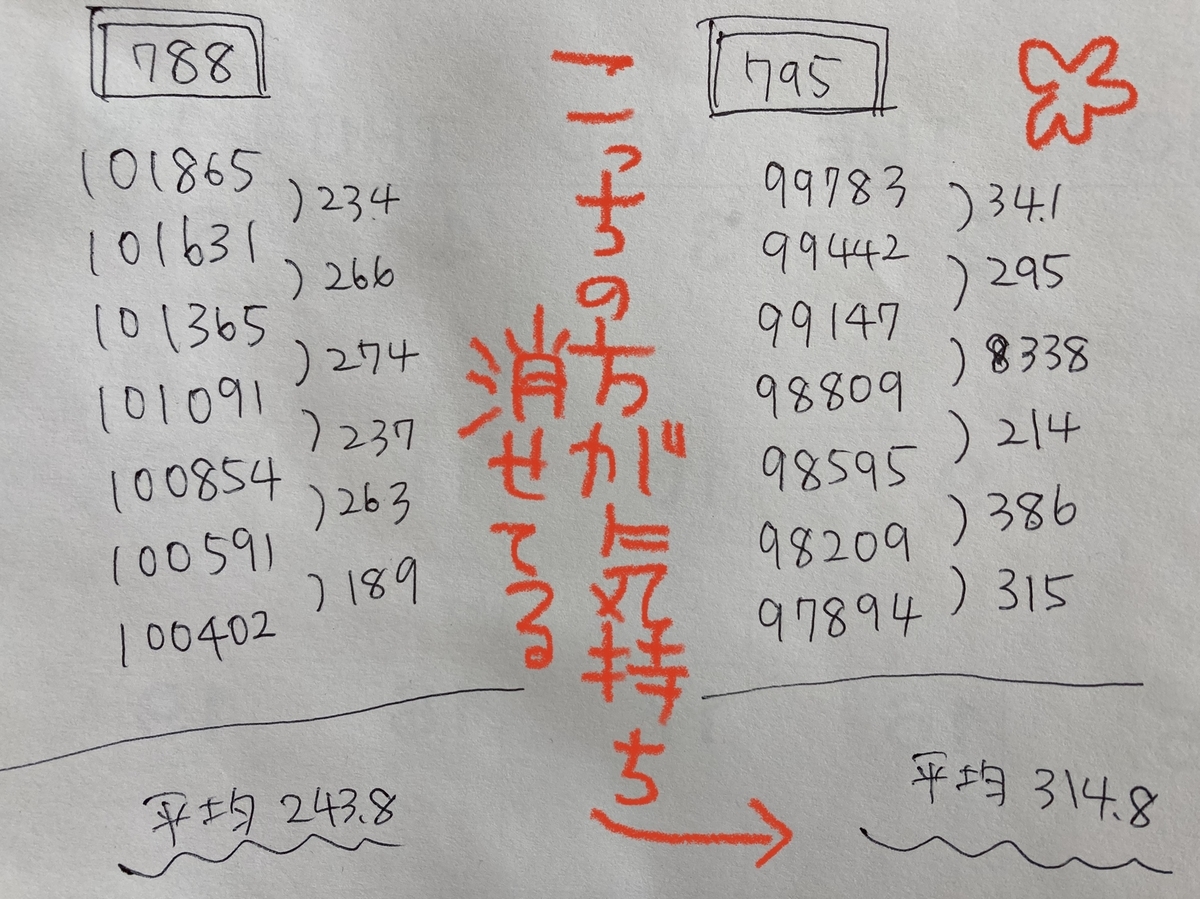 788
101865
101631
101365
101091
100854
100591
100402
)234
)266
)274
)237
)263
)189
平均 243.8
こっちの方が気持ち
消せてる
795
99783
99442
99147
98809
98595
98209
97894
)341
)295
)338
)214
)386
)315
平均 314.8